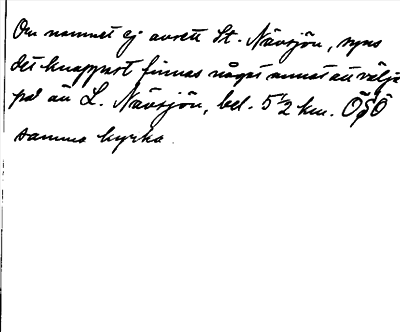 Om namnet ej avsett St. Nävsjön, synes
det knappast finnas något annat att välja
på än L. Nävsjön, bel. 5 1/2 km. ÖSÖ
samma kyrka.